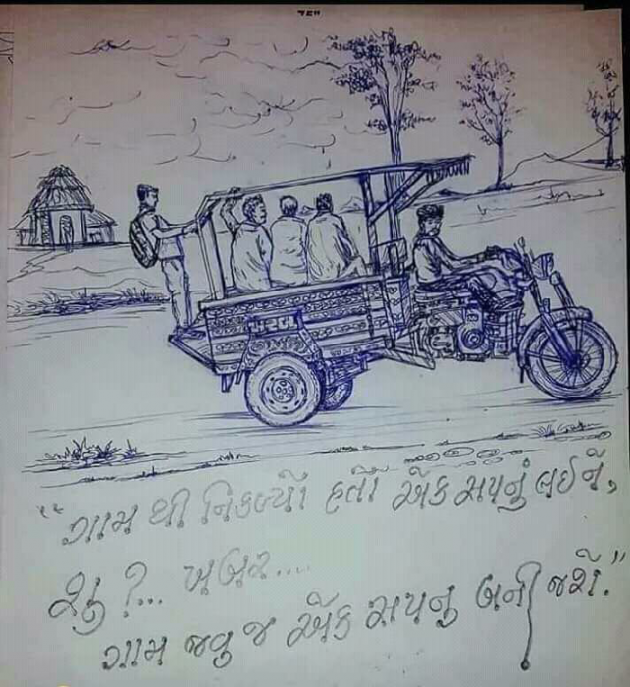 “ગામ થી નિકળ્યો હતો એક સપનું લઇ ને,
શુ ?... ખબર....
ગામ જવુ જ એક સપનુ બની જશે.”